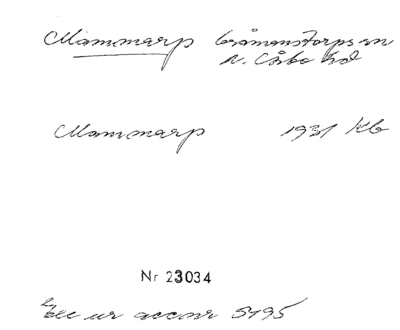 Mammarp Gråmanstorps sn
N. Åsbo hd
Mammarp 1931 Kb
Nr 23034
ur accnr 5195